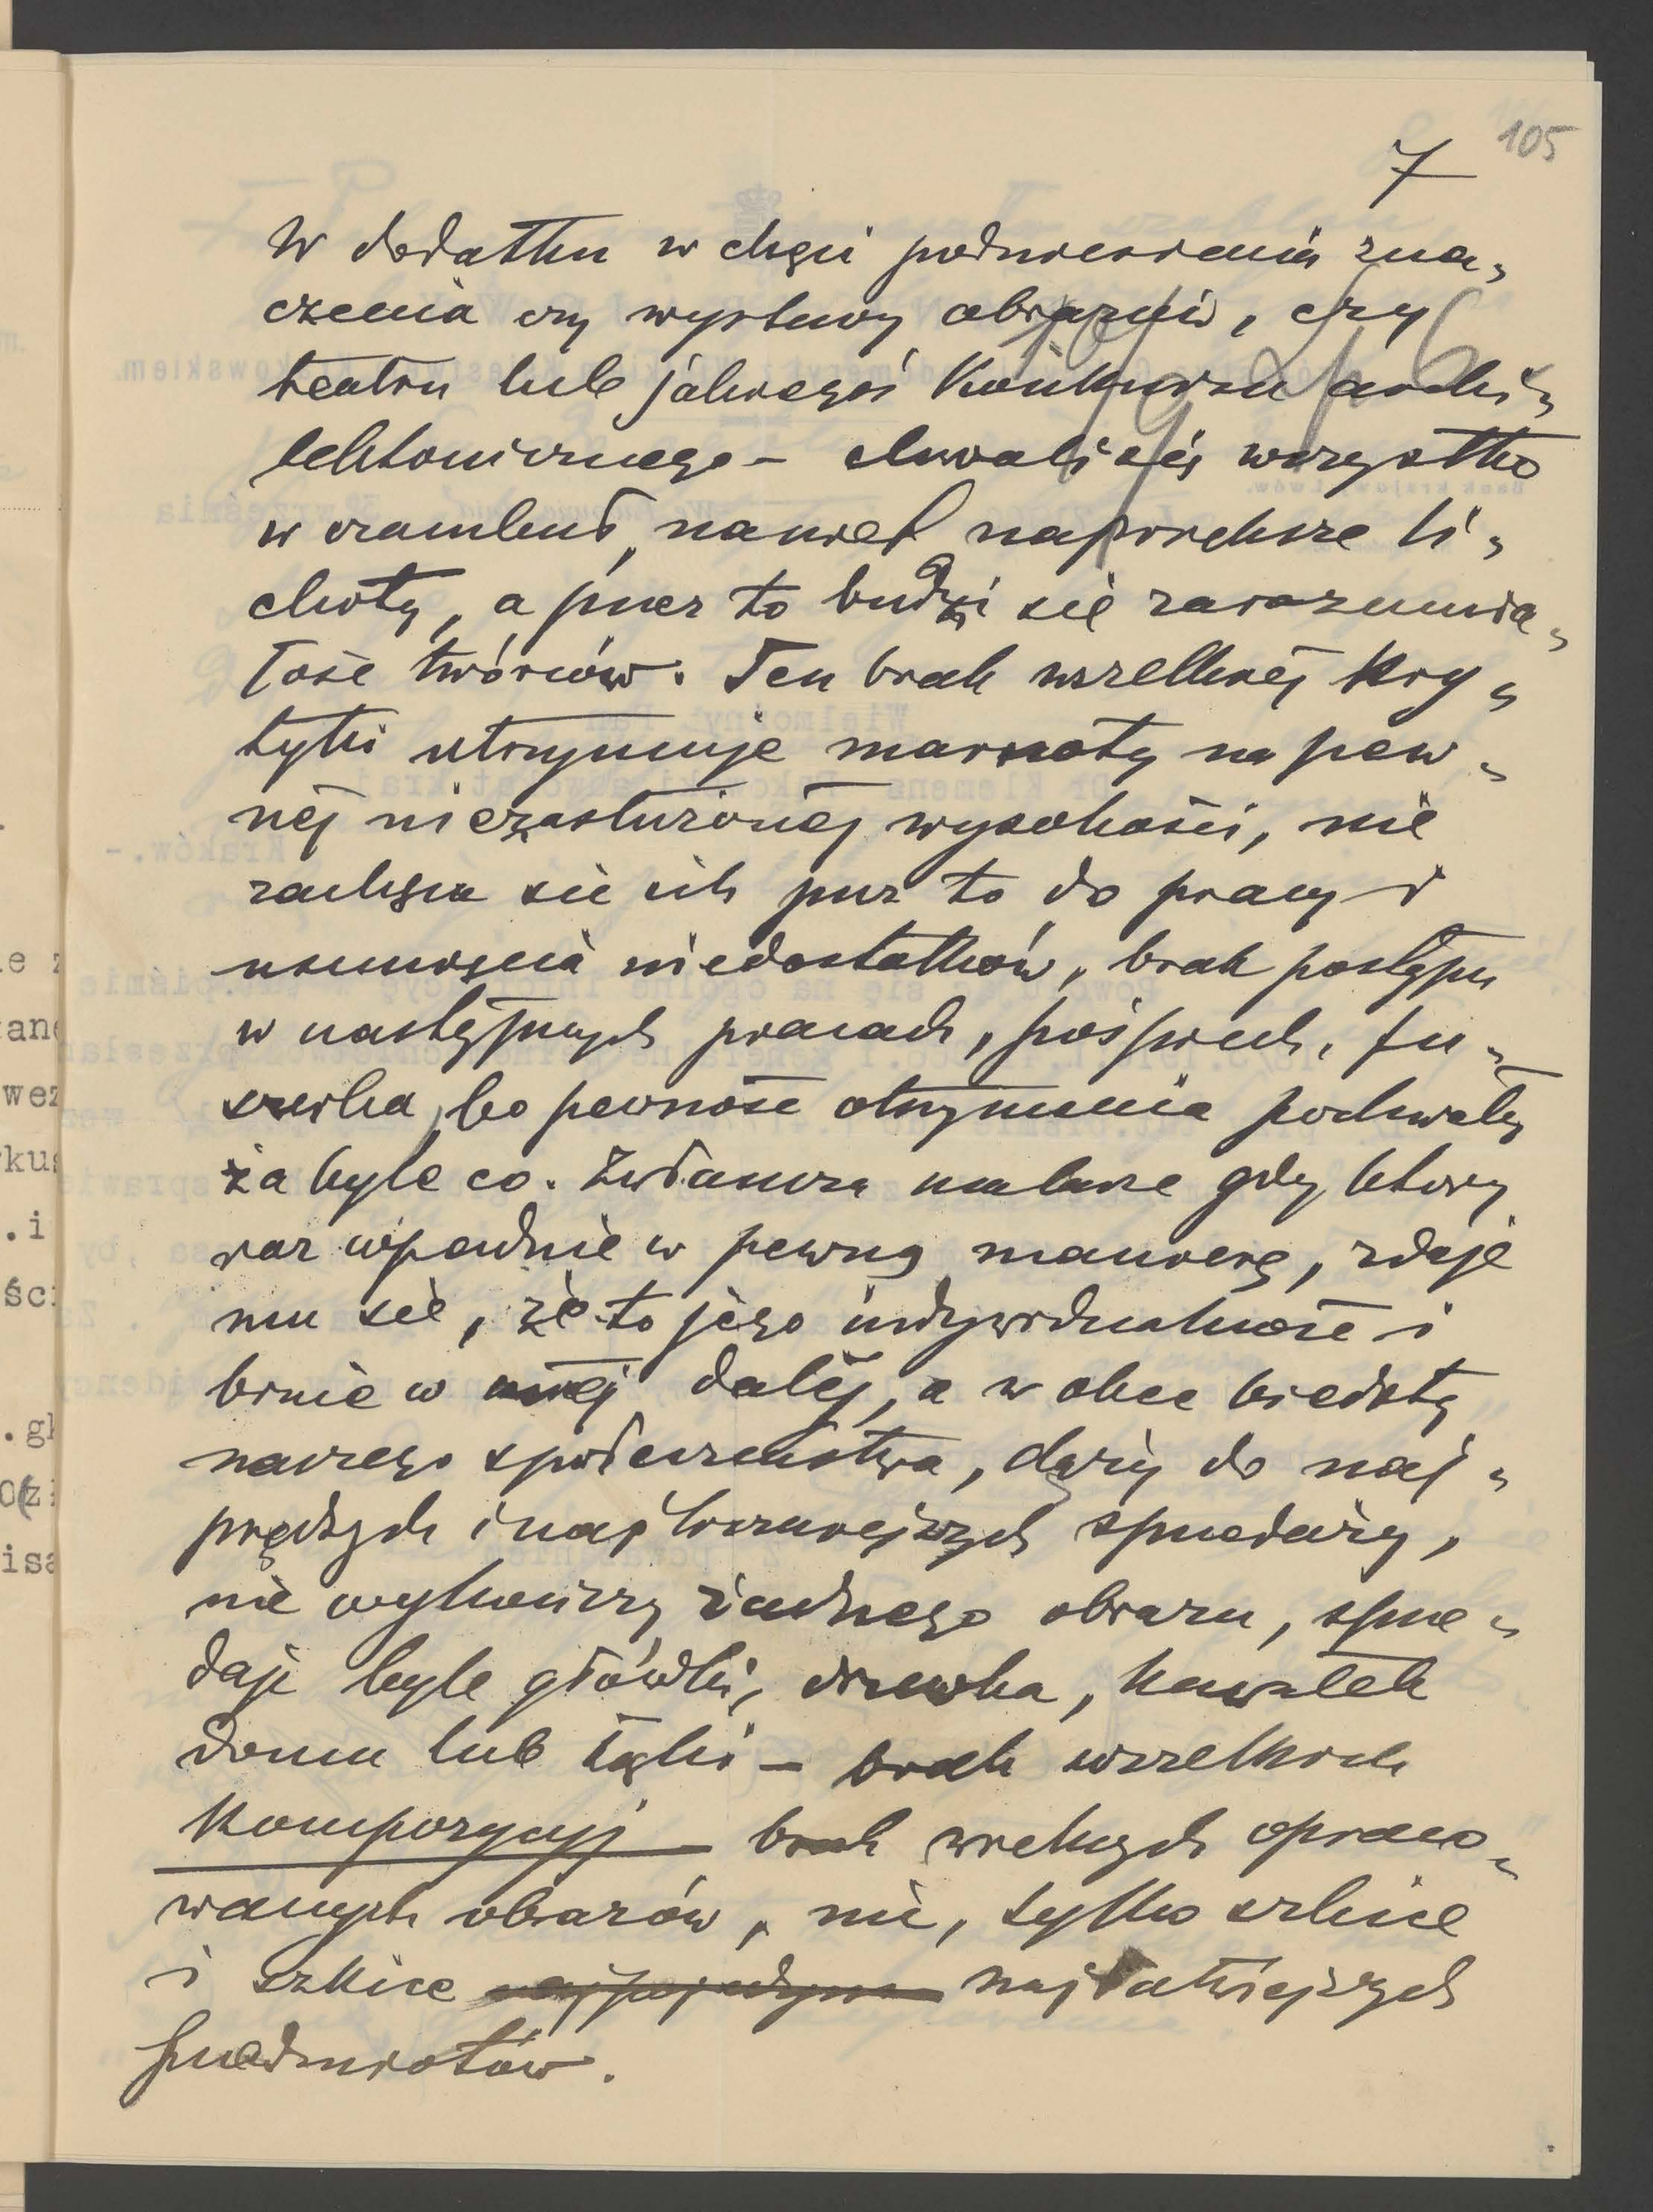 105
7
W dodatku w chęci podniesienia zna„
czenia czy wystawy obrazów, czy
teatru lub jakiegoś Konkursu archi„
tektonicznego – chwali się wszystko
w czambuł, nawet największe li„
choty, a przez to budzi się zarozumia„
łość twórców. Ten brak wszelkiej kry„
tyki utrzymuje marnoty na pew„
nej niezasłużonej wysokości, nie
zachęca się ich przez to do pracy i
usunięcia niedostatków, brak postępu
w następnych pracach, pośpiech, fu„
szerka, bo pewność otrzymania pochwały
za byle co. Zwłaszcza malarze gdy który
raz wpadnie w pewną manierę, zdaje
mu się, że to jego indywidualność i
brnie w niej dalej, a w obec biedoty
naszego społeczeństwa, dąży do naj„
prędszych i najliczniejszych sprzedaży,
nie wykończy żadnego obrazu, sprze„
daje byle główki, drzewka, kawałek
domu lub łąki – brak wszelkich
Kompozycyj – brak wielkich opraco„
wanych obrazów, nic, tylko szkice
i szkice najłatwiejszych
przedmiotów.